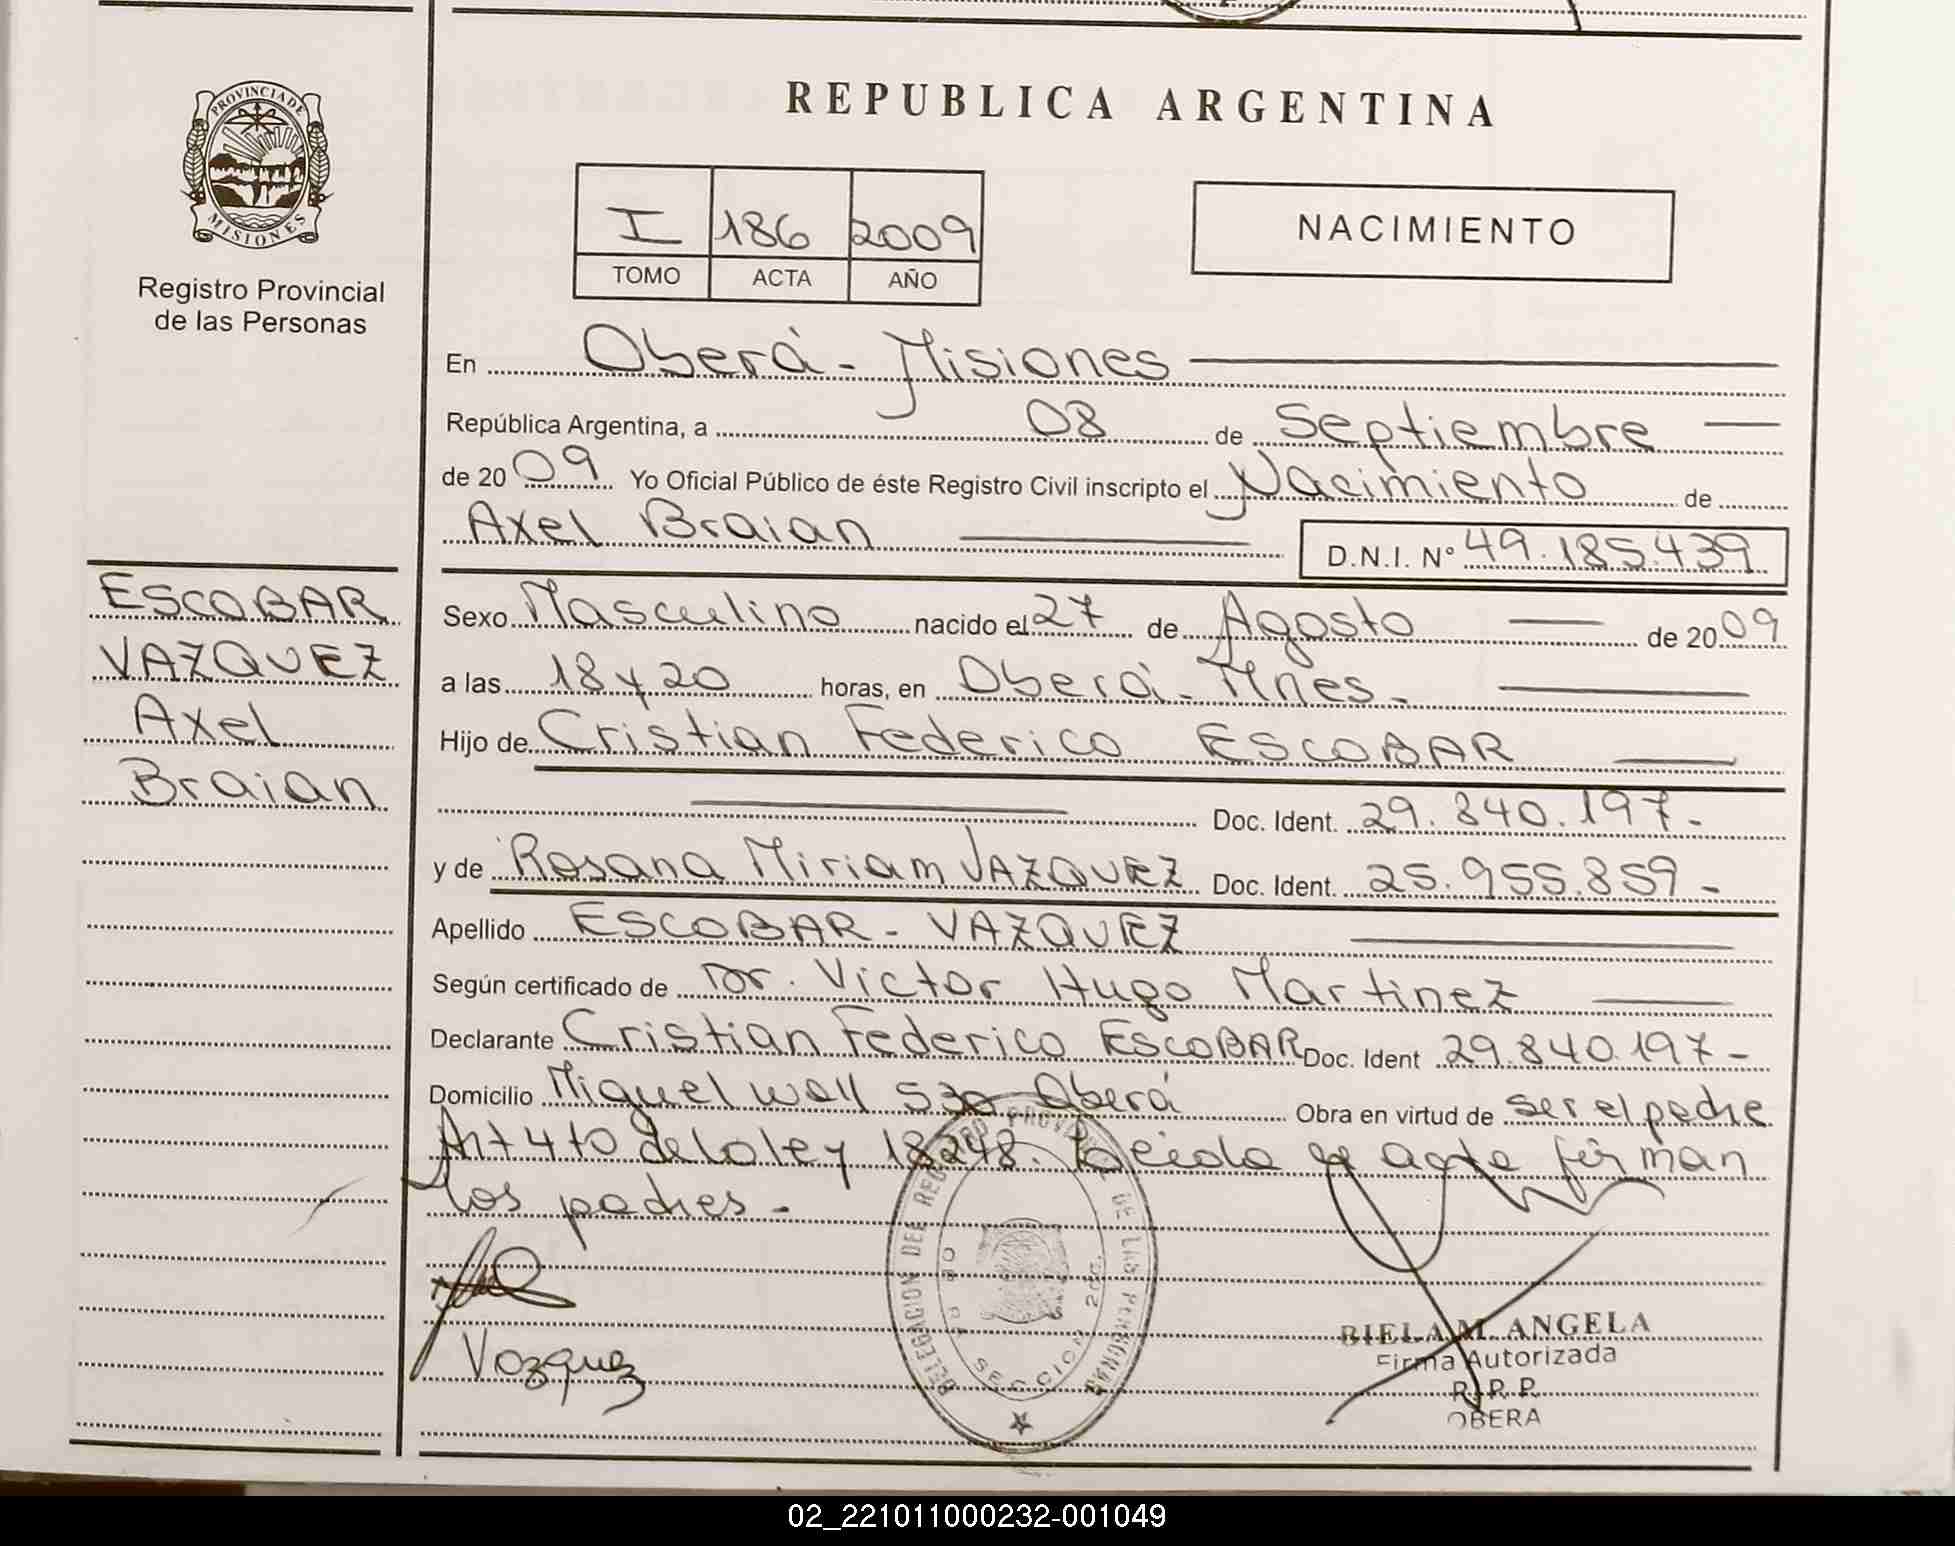 PROVINCIA DE
MISIONES
Registro Provincial
de las Personas
ESCOBAR
VAZQUEZ
Axel
Braian
REPUBLICA ARGENTINA
I 186 2009
TOMO ACTA AÑO
NACIMIENTO
En Oberá - Misiones
República Argentina, a 08 de Septiembre
de 2009 Yo Oficial Público de éste Registro Civil inscripto el Nacimiento de
Axel Braian D.N.I. Nº 49.185.439
Sexo Masculino nacido el 27 de Agosto de 2009
a las 18 y 20 horas, en Oberá - Mnes.
Hijo de Cristian Federico ESCOBAR
Doc. Ident. 29.840.197.-
y de Rosana Miriam VAZQUEZ Doc. Ident. 25.955.859 -
Apellido ESCOBAR - VAZQUEZ
Según certificado de Dr. Victor Hugo Martinez
Declarante Cristian Federico ESCOBAR Doc. Ident 29.840.197-
Domicilio Miguel well 530 Oberá Obra en virtud de ser el padre
Art 4to de la ley 18248. Leida el acta firman
los padres -
Vazquez
DELEGACION DEL REGISTRO PROVINCIAL DE LAS PERSONAS
OBERA SECCION 2DA.
BIELA M. ANGELA
Firma Autorizada
R. P. P.
OBERA
02_221011000232-001049